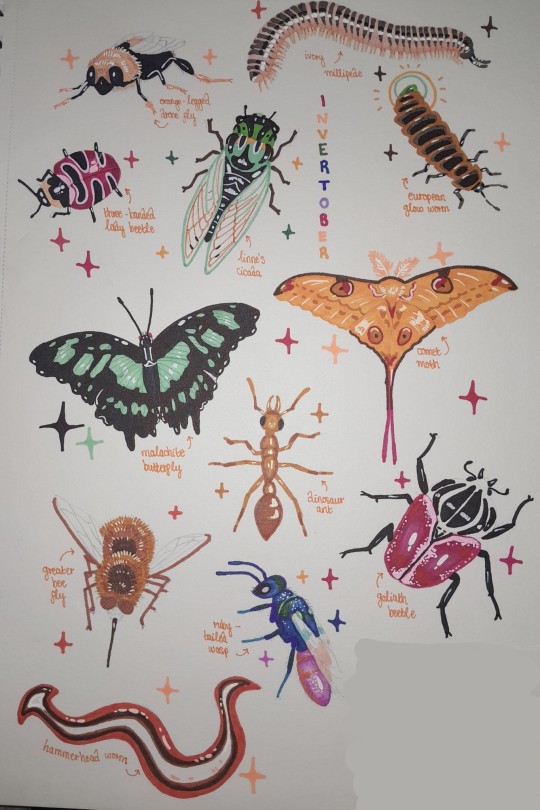 ivory
millipede
orange-legged
drone fly
INVERTOBER
european
glow worm
three-banded
lady beetle
linne's
cicada
comet
moth
malachite
butterfly
dinosaur
ant
greater
bee
fly
goliath
beetle
ruby-
tailed
wasp
hammerhead worm